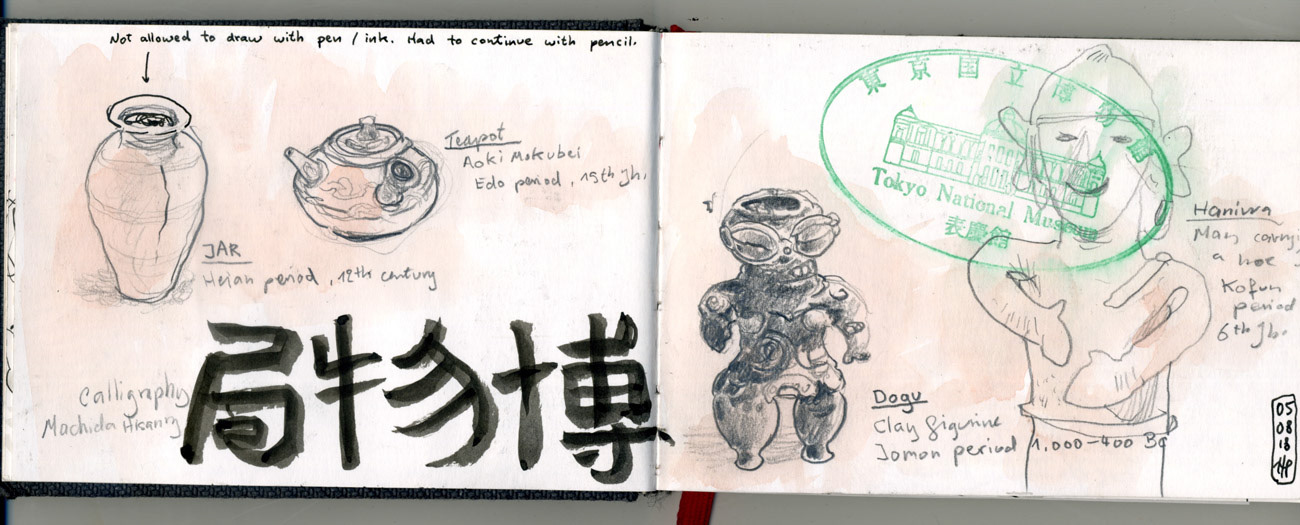 Not allowed to draw with pen / ink. Had to continue with pencil.
JAR
Heian period, 12th century
Teapot
Aoki Mokubei
Edo period, 19th Jh.
Calligraphy
Machida
博物局
東京国立博物館
Tokyo National Museum
表慶館
Haniwa
Man
a hoe
Kofun
period
6th Jh.
Dogu
Clay figurine
Jomon period 1.000-400 BC
05
08
18